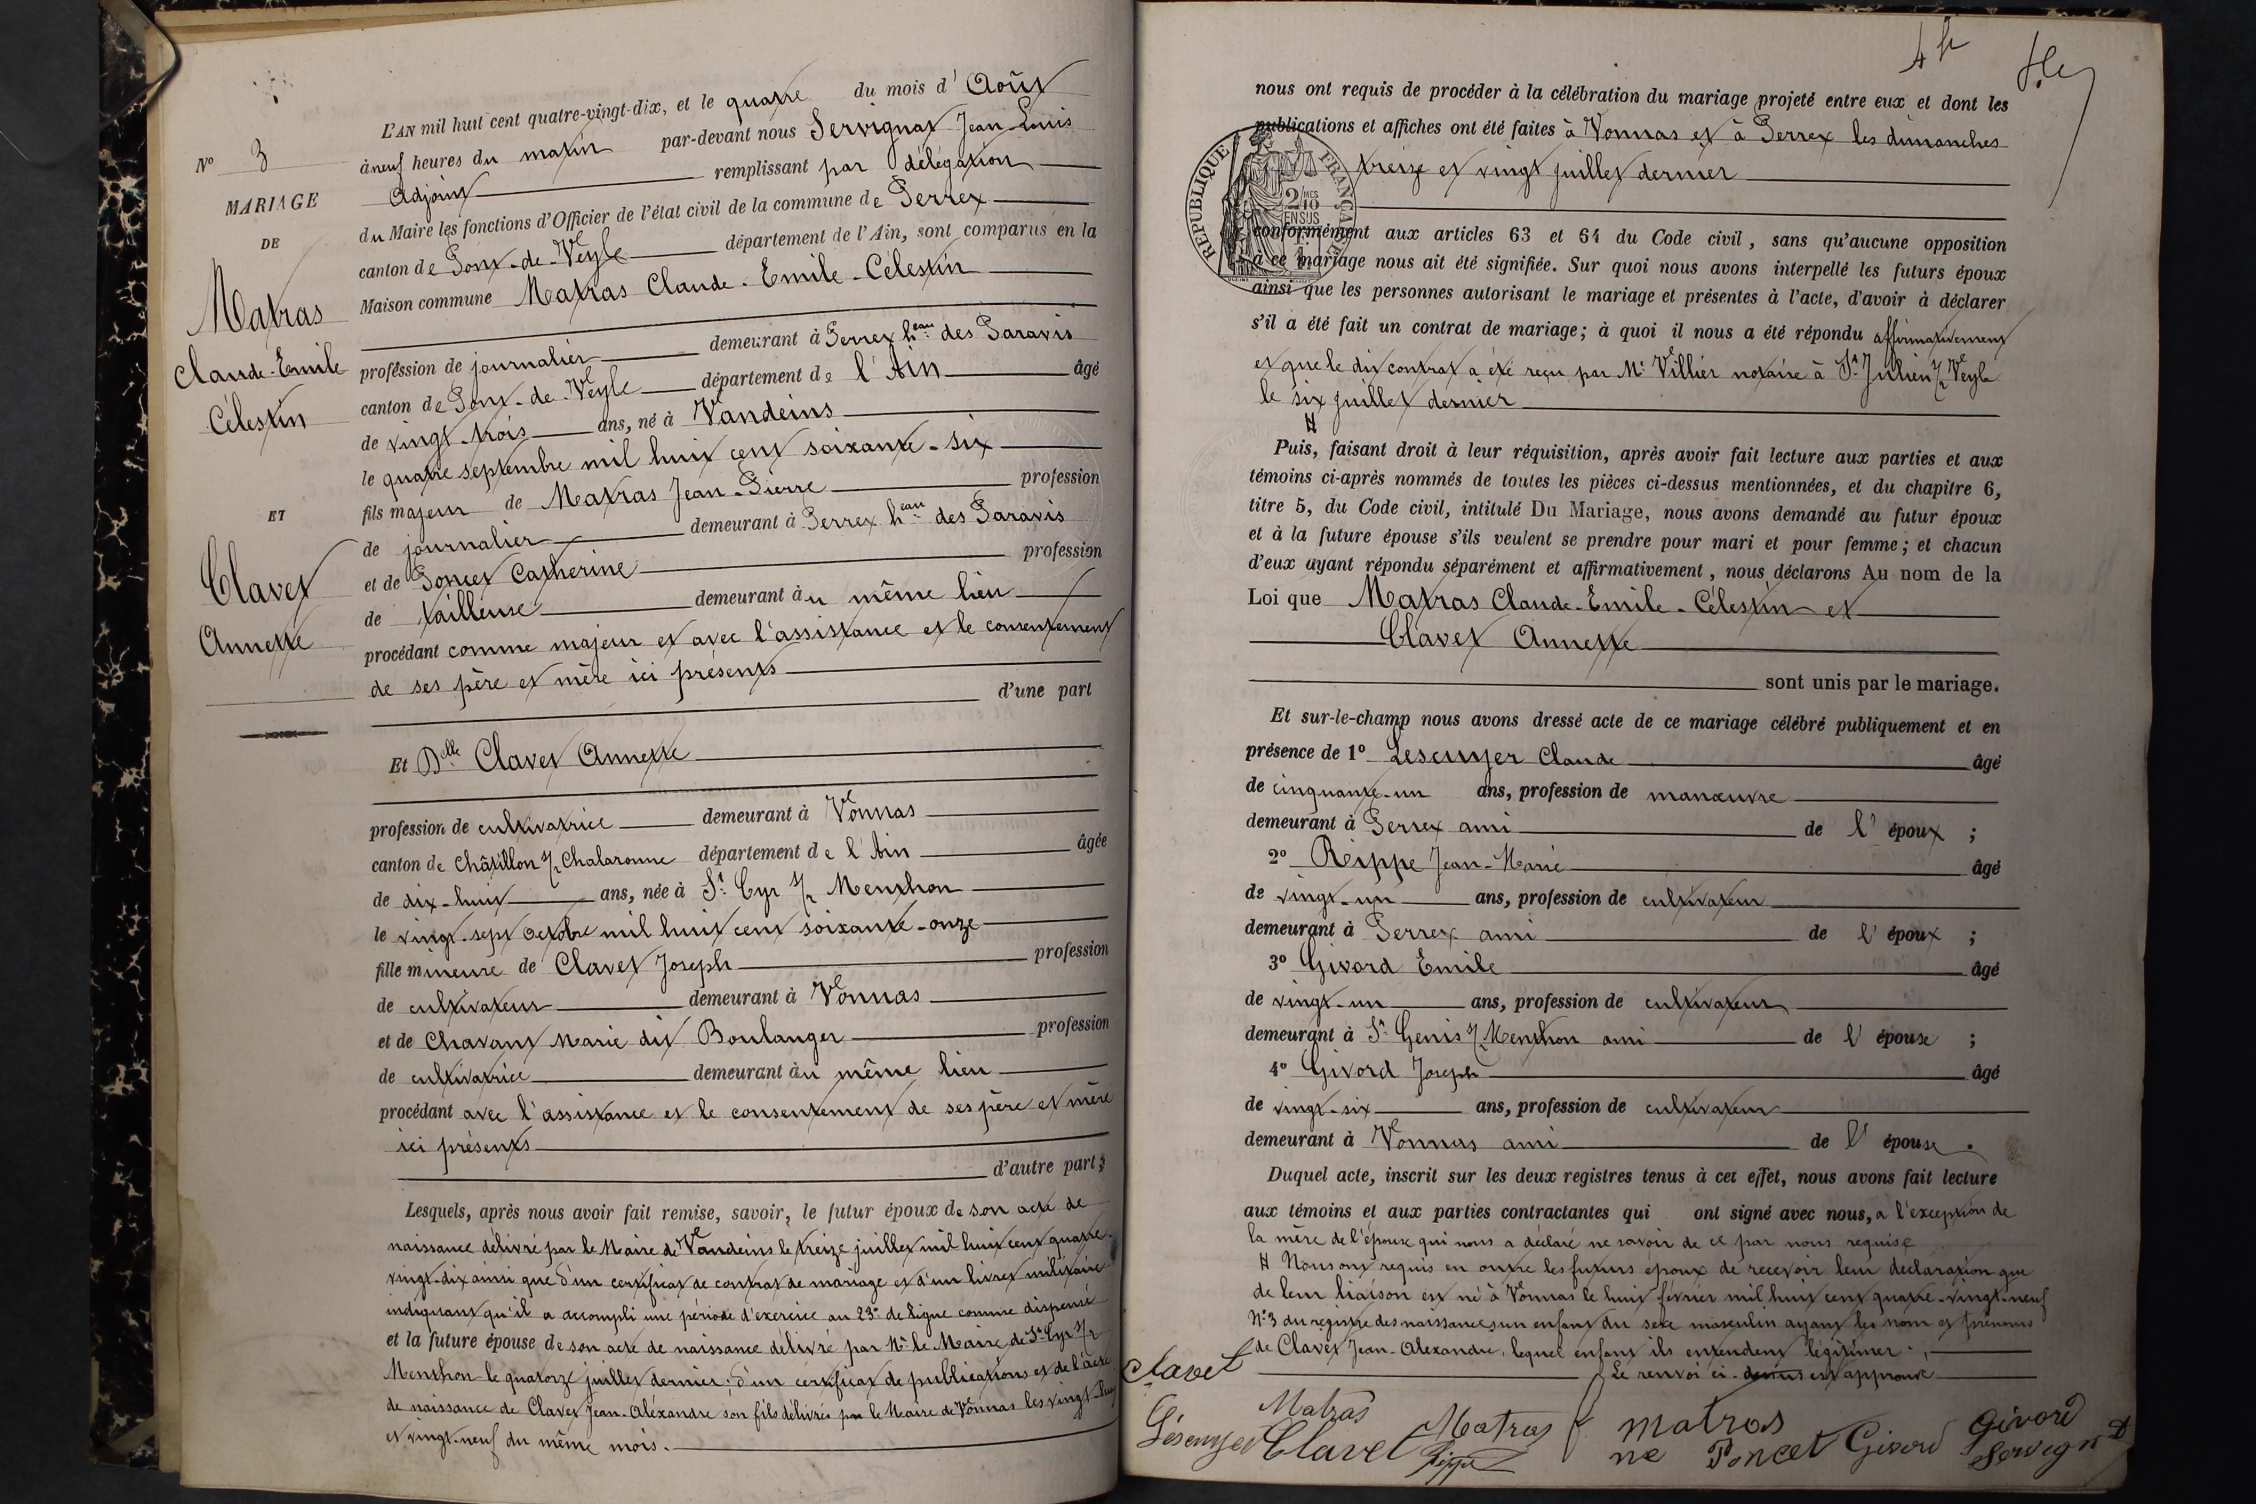 N° 3
MARIAGE
DE
Matras
Claude-Emile
Célestin
ET
Clavet
Annette
L'AN mil huit cent quatre-vingt-dix, et le quatre du mois d'Août
à neuf heures du matin par-devant nous Servignat Jean-Louis
Adjoint remplissant par délégation
du Maire les fonctions d'Officier de l'état civil de la commune de Perrex
canton de Pont-de-Veyle département de l'Ain, sont comparus en la
Maison commune Matras Claude-Emile-Célestin
profession de journalier demeurant à Perrex heau des Paravis
canton de Pont-de-Veyle département de l'Ain âgé
de vingt-trois ans, né à Vandeins
le quatre septembre mil huit cent soixante-six
fils majeur de Matras Jean-Pierre profession
de journalier demeurant à Perrex heau des Paravis
et de Poncet Catherine profession
de tailleuse demeurant au même lieu
procédant comme majeur et avec l'assistance et le consentement
de ses père et mère ici présents
d'une part
Et Delle Clavet Annette
profession de cultivatrice demeurant à Vonnas
canton de Châtillon s/r Chalaronne département de l'Ain âgée
de dix-huit ans, née à St Cyr s/r Menthon
le vingt-sept Octobre mil huit cent soixante-onze
fille mineure de Clavet Joseph profession
de cultivateur demeurant à Vonnas
et de Chavant Marie dit Boulanger profession
de cultivatrice demeurant au même lieu
procédant avec l'assistance et le consentement de ses père et mère
ici présents
d'autre part;
Lesquels, après nous avoir fait remise, savoir, le futur époux de son acte de
naissance délivré par le Maire de Vandeins le treize juillet mil huit cent quatre-
vingt-dix ainsi que d'un certificat de contrat de mariage et d'un livret militaire
indiquant qu'il a accompli une période d'exercice au 23e de Ligne comme dispensé
et la future épouse de son acte de naissance délivré par Mr le Maire de St Cyr s/r
Menthon le quatorze juillet dernier; d'un certificat de publications et de l'acte
de naissance de Clavet Jean-Aléxandre son fils délivrés par le Maire de Vonnas les vingt-
et vingt-neuf du même mois.
nous ont requis de procéder à la célébration du mariage projeté entre eux et dont les
publications et affiches ont été faites à Vonnas et à Perrex les dimanches
treize et vingt juillet dernier
RÉPUBLIQUE FRANÇAISE
2/10 MES
EN SUS
conformément aux articles 63 et 64 du Code civil, sans qu'aucune opposition
à ce mariage nous ait été signifiée. Sur quoi nous avons interpellé les futurs époux
ainsi que les personnes autorisant le mariage et présentes à l'acte, d'avoir à déclarer
s'il a été fait un contrat de mariage; à quoi il nous a été répondu affirmativement
et que le dit contrat a été reçu par Me Villier notaire à St Julien s/r Veyle
le six juillet dernier
#
Puis, faisant droit à leur réquisition, après avoir fait lecture aux parties et aux
témoins ci-après nommés de toutes les pièces ci-dessus mentionnées, et du chapitre 6,
titre 5, du Code civil, intitulé Du Mariage, nous avons demandé au futur époux
et à la future épouse s'ils veulent se prendre pour mari et pour femme; et chacun
d'eux ayant répondu séparément et affirmativement, nous déclarons Au nom de la
Loi que Matras Claude-Emile-Célestin et
Clavet Annette
sont unis par le mariage.
Et sur-le-champ nous avons dressé acte de ce mariage célébré publiquement et en
présence de 1° Lescuyer Claude âgé
de cinquante-un ans, profession de manœuvre
demeurant à Perrex ami de l'époux ;
2° Rippe Jean-Marie âgé
de vingt-un ans, profession de cultivateur
demeurant à Perrex ami de l'époux ;
3° Givord Emile âgé
de vingt-un ans, profession de cultivateur
demeurant à St Genis s/r Menthon ami de l'épouse ;
4° Givord Joseph âgé
de vingt-six ans, profession de cultivateur
demeurant à Vonnas ami de l'épouse.
Duquel acte, inscrit sur les deux registres tenus à cet effet, nous avons fait lecture
aux témoins et aux parties contractantes qui ont signé avec nous, a l'exception de
la mère de l'épouse qui nous a déclaré ne savoir de ce par nous requise
# Nous ont requis en outre les futurs époux de recevoir leur déclaration que
de leur liaison est né à Vonnas le huit février mil huit cent quatre-vingt-neuf
N° 3 du registre des naissances, un enfant du sexe masculin ayant les nom et prénoms
de Clavet Jean-Alexandre, lequel enfant ils entendent légitimer.
Le renvoi ci-dessus est approuvé
Clavet
Matras
Matras
matras
Givord
Lésenyer
Clavel
Rippe
ne Poncet
Givord
Servignat